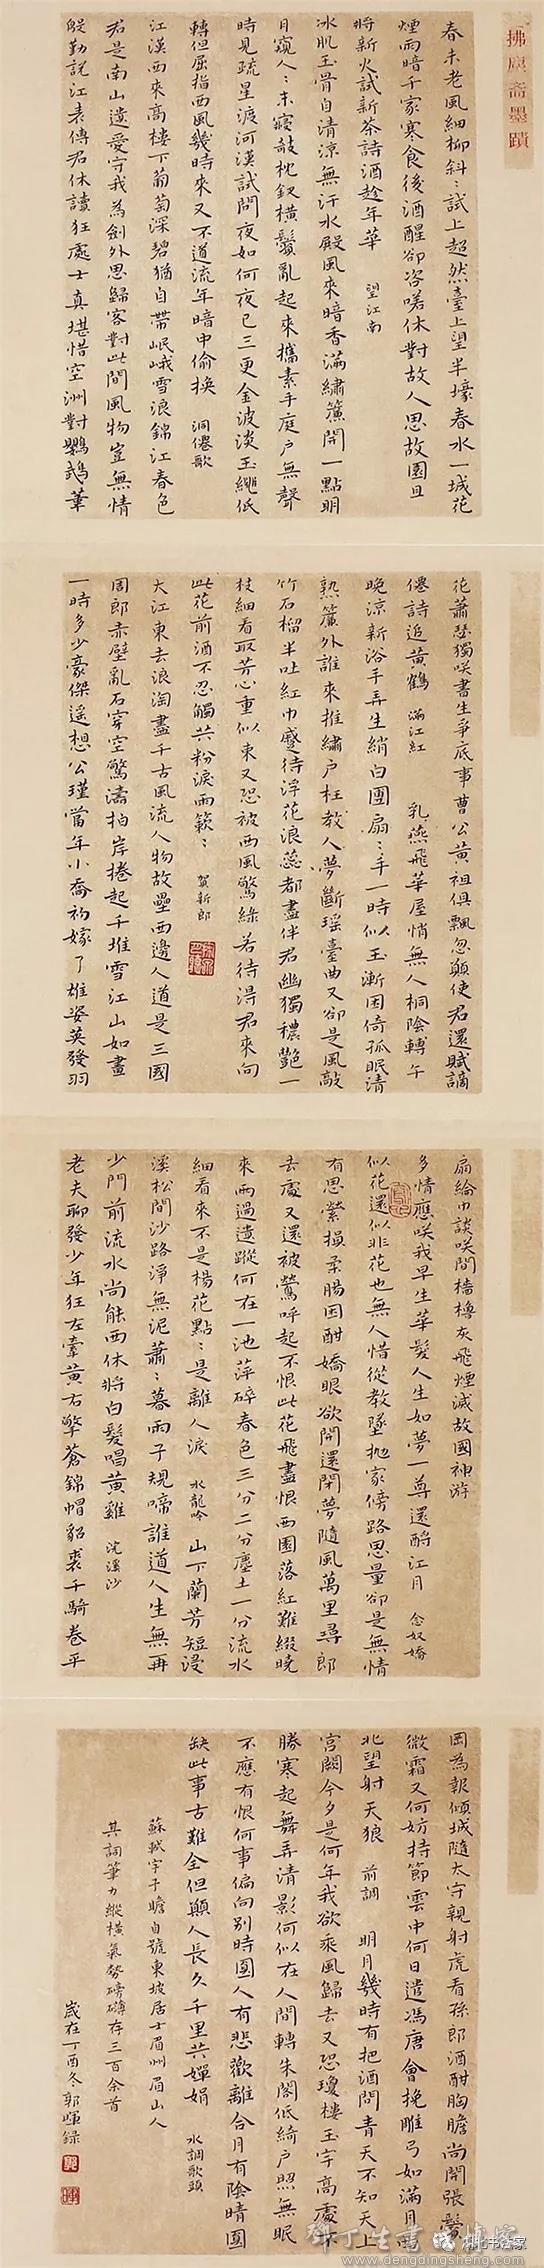 拂庾斋墨蹟
春未老風細柳斜〻試上超然臺上望半壕春水一城花
煙雨暗千家寒食後酒醒卻咨嗟休對故人思故園且
將新火試新茶詩酒趁年華 望江南
冰肌玉骨自清涼無汗水殿風來暗香滿繡簾開一點明
月窺人〻未寢敧枕釵橫鬢亂起來攜素手庭户無聲
時見疏星渡河漢試問夜如何夜已三更金波淡玉繩低
轉但屈指西風幾時來又不道流年暗中偷換 洞僊歌
江漢西來高樓下葡萄深碧猶自帶岷峨雪浪錦江春色
君是南山遺愛守我為劍外思歸客對此間風物豈無情
殷勤説江表傳君休讀狂處士真堪惜空洲對鸚鵡葦
花蕭瑟獨咲書生爭底事曹公黃祖俱飄忽願使君還賦謫
僊詩追黃鶴 滿江紅 乳燕飛華屋悄無人桐陰轉午
晚涼新浴手弄生綃白團扇〻手一時似玉漸困倚孤眠清
熟簾外誰來推繡户枉教人夢斷瑶臺曲又卻是風敲
竹石榴半吐紅巾蹙待浮花浪蕊都盡伴君幽獨穠艷一
枝細看取芳心重似束又恐被西風驚綠若待得君來向
此花前酒不忍觸共粉淚兩簌〻 賀新郎
大江東去浪淘盡千古風流人物故壘西邊人道是三國
周郎赤壁亂石穿空驚濤拍岸捲起千堆雪江山如畫
一時多少豪傑遥想公瑾當年小喬初嫁了雄姿英發羽
扇綸巾談咲間檣櫓灰飛煙滅故國神游
多情應咲我早生華髮人生如夢一尊還酹江月 念奴嬌
似花還似非花也無人惜從教墜拋家傍路思量卻是無情
有思縈損柔腸困酣嬌眼欲開還閉夢隨風萬里尋郎
去處又還被鶯呼起不恨此花飛盡恨西園落紅難綴曉
來雨過遺蹤何在一池萍碎春色三分二分塵土一分流水
細看來不是楊花點〻是離人淚 水龍吟 山下蘭芳短浸
溪松間沙路淨無泥蕭〻暮雨子規啼誰道人生無再
少門前流水尚能西休將白髮唱黃雞 浣溪沙
老夫聊發少年狂左牽黃右擎蒼錦帽貂裘千騎卷平
岡為報傾城隨太守親射虎看孫郎酒酣胸膽尚開張鬢
微霜又何妨持節雲中何日遣馮唐會挽雕弓如滿月西
北望射天狼 前調 明月幾時有把酒問青天不知天上
宮闕今夕是何年我欲乘風歸去又恐瓊樓玉宇高處不
勝寒起舞弄清影何似在人間轉朱閣低綺户照無眠
不應有恨何事偏向別時圓人有悲歡離合月有陰晴圓
缺此事古難全但願人長久千里共嬋娟 水調歌頭
蘇軾字子瞻自號東坡居士眉州眉山人
其詞筆力縱橫氣勢磅礴存三百余首
歲在丁酉冬郭暉録
www.dengdingsheng.com